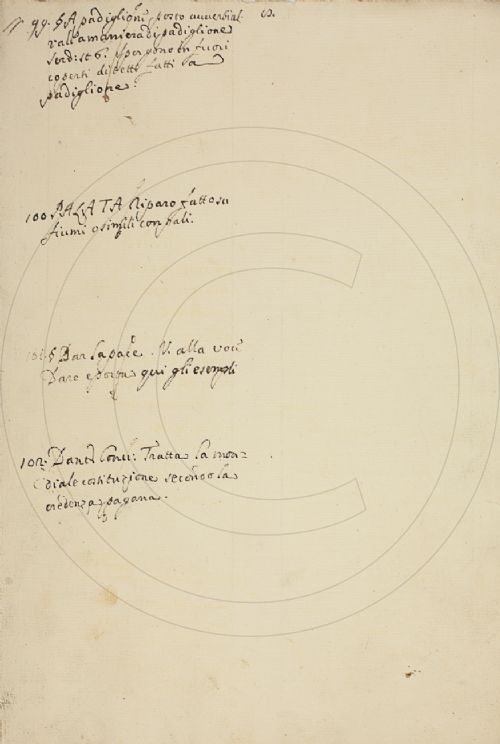 99. § A padiglioni posto avverbial.
vall'a maniera di padiglione
Serdist. 6. Sporgono in fuori
coperti di tetti fatti a
padiglione.
100 PALATA Riparo fatto su
fiumi o simili con pali.
§ Dar la pace. V. alla voce
Dare e porta qui gli esempli
102. Dant. Conv. Tratta la mon=
diale costituzione secondo la
credenza pagana.